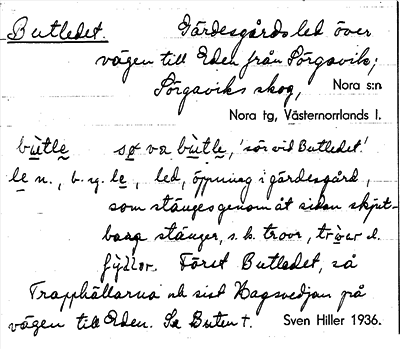 Butledet. Gärdesgårdsled över
vägen till Eden från Sörgsvik;
Sörgsviks skog, Nora s:n
Nora tg, Västernorrlands l.
bùtle sø va bùtle, 'sör vid Butledet.'
le n., b. y. le, led, öppning i gärdesgård,
som stänges genom åt sidan skjut-
bara stänger, s. k.
Först Butledet, så
Trapphällarna ok sist Hagsvedjan på
vägen till Eden. Se Buten t. Sven Hiller 1936.